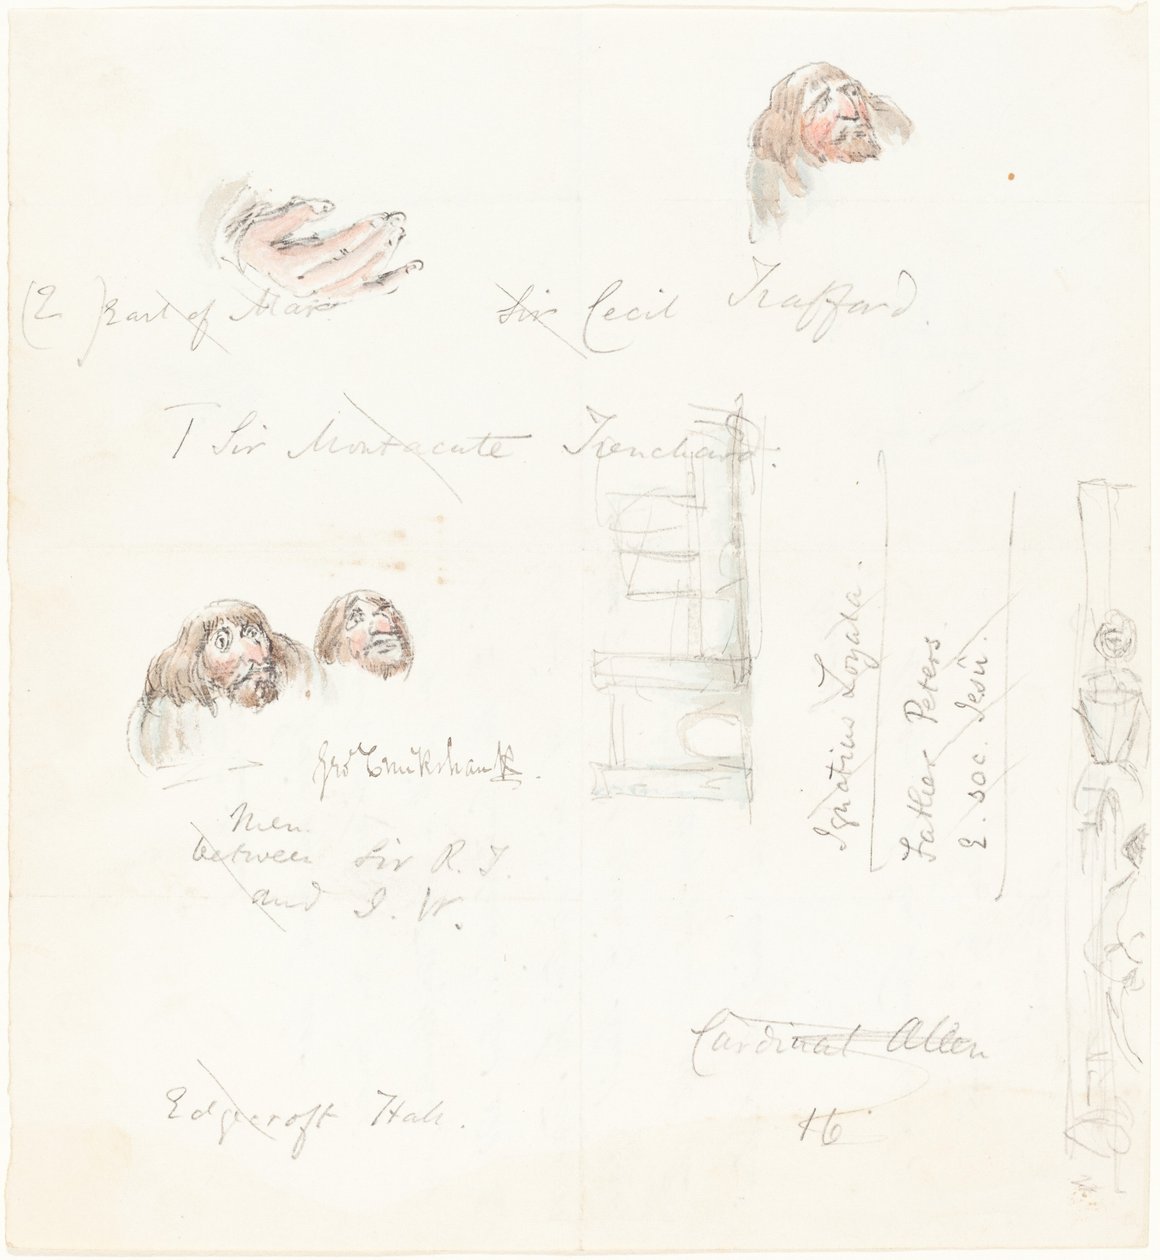 (E) Earl of Mar
Sir Cecil Trafford.
T Sir Montacute Trenchard.
Geo Cruikshank.
Men
between Sir R. T.
and I. W.
Ignatius Loyala.
Father Peters
E. soc. Jesu.
Cardinal Allen
Edgecroft Hall.